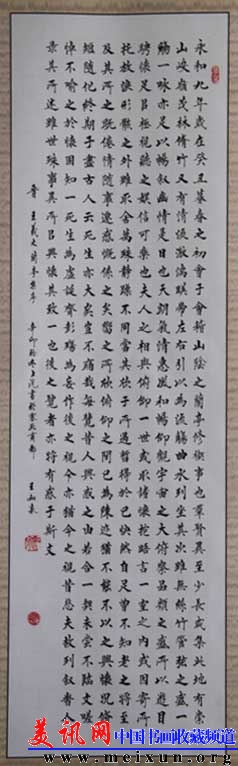 永和九年歲在癸丑暮春之初會于會稽山陰之蘭亭修禊事也羣賢畢至少長咸集此地有崇
山峻嶺茂林脩竹又有清流激湍暎帶左右引以為流觴曲水列坐其次雖無絲竹管弦之盛一
觴一詠亦足以暢叙幽情是日也天朗氣清惠風和暢仰觀宇宙之大俯察品類之盛所以遊目
騁懷足以極視聽之娛信可樂也夫人之相與俯仰一世或取諸懷抱晤言一室之內或因寄所
託放浪形骸之外雖趣舍萬殊靜躁不同當其欣於所遇暫得於己快然自足曾不知老之將至
及其所之既惓情隨事遷感慨係之矣向之所欣俛仰之間已為陳迹猶不能不以之興懷況脩
短隨化終期于盡古人云死生亦大矣豈不痛哉每覽昔人興感之由若合一契未嘗不臨文嗟
悼不喻之於懷固知一死生為虛誕齊彭殤為妄作後之視今亦猶今之視昔悲夫故列叙時人
錄其所述雖世殊事異所以興懷其致一也後之覽者亦將有感于斯文
晉 王羲之蘭亭集序 辛卯 書於 商都 王
美讯网 中国书画收藏频道
www.meixun.org